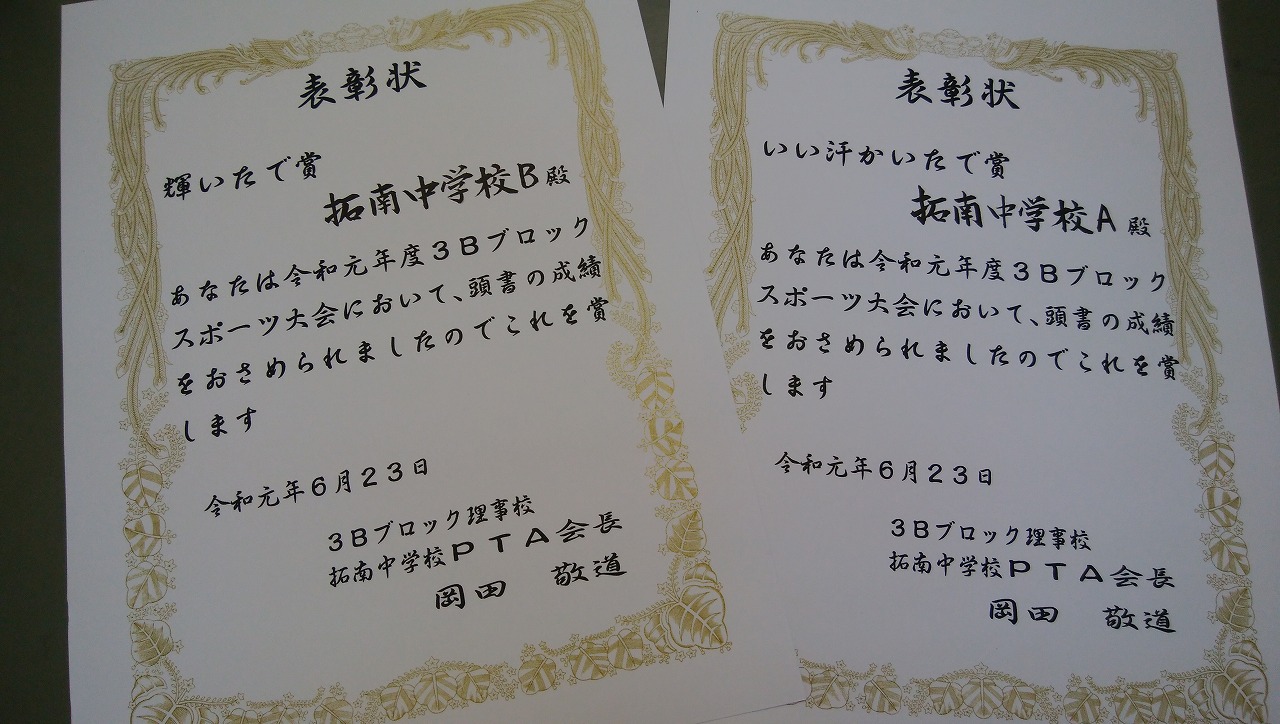 表彰状
輝いたで賞
拓南中学校B 殿
あなたは令和元年度3Bブロック
スポーツ大会において、頭書の成績
をおさめられましたのでこれを賞
します
令和元年6月23日
3Bブロック理事校
拓南中学校PTA会長
岡田 敬道
表彰状
いい汗かいたで賞
拓南中学校A 殿
あなたは令和元年度3Bブロック
スポーツ大会において、頭書の成績
をおさめられましたのでこれを賞
します
令和元年6月23日
3Bブロック理事校
拓南中学校PTA会長
岡田 敬道